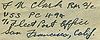 F N Clark Rm 3/c
USS PC 1194
℅ Fleet Post Office
San Francisco, Calif.